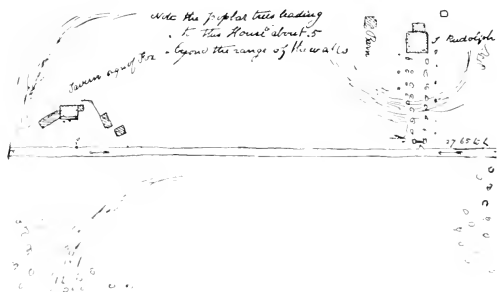 Note the Poplar trees leading
to this House about 5
beyond the range of the walls
Tavern sign of Fox
Barn
J Rudolph